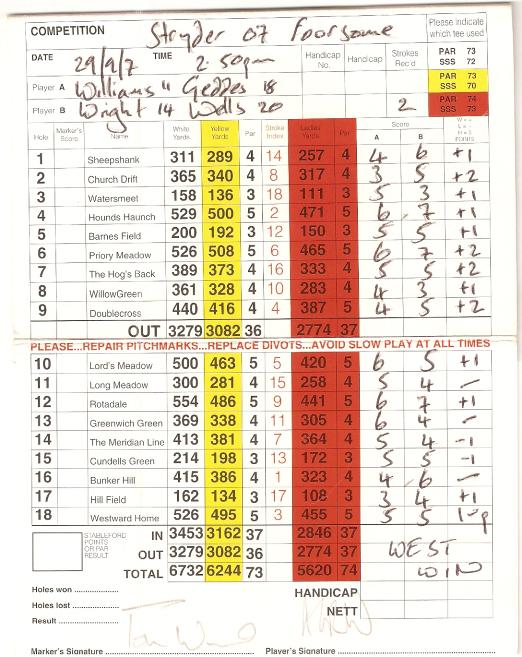 COMPETITION Stryder 07 foorsome Please indicate which tee used
DATE 29/9/7 TIME 2.50pm Handicap No. Handicap Strokes Rec'd PAR 73 SSS 72
Player A Williams 11 Geddes 18 PAR 73 SSS 70
Player B Wright 14 Wells 20 2 PAR 74 SSS 73
Hole Marker's Score Name White Yards Yellow Yards Par Stroke Index Ladies Yards Par Score A B W = + L = - H = 0 POINTS
1 Sheepshank 311 289 4 14 257 4 4 6 +1
2 Church Drift 365 340 4 8 317 4 3 5 +2
3 Watersmeet 158 136 3 18 111 3 5 3 +1
4 Hounds Haunch 529 500 5 2 471 5 6 7 +1
5 Barnes Field 200 192 3 12 150 3 5 5 +1
6 Priory Meadow 526 508 5 6 465 5 6 7 +2
7 The Hog's Back 389 373 4 16 333 4 5 5 +2
8 WillowGreen 361 328 4 10 283 4 4 3 +1
9 Doublecross 440 416 4 4 387 5 4 5 +2
OUT 3279 3082 36 2774 37
PLEASE...REPAIR PITCHMARKS...REPLACE DIVOTS...AVOID SLOW PLAY AT ALL TIMES
10 Lord's Meadow 500 463 5 5 420 5 6 5 +1
11 Long Meadow 300 281 4 15 258 4 5 4 –
12 Rotadale 554 486 5 9 441 5 6 7 +1
13 Greenwich Green 369 338 4 11 305 4 6 4 –
14 The Meridian Line 413 381 4 7 364 4 5 4 -1
15 Cundells Green 214 198 3 13 172 3 5 5 -1
16 Bunker Hill 415 386 4 1 323 4 4 6 –
17 Hill Field 162 134 3 17 108 3 3 4 +1
18 Westward Home 526 495 5 3 455 5 5 5 1up
STABLEFORD POINTS OR PAR RESULT IN 3453 3162 37 2846 37
OUT 3279 3082 36 2774 37 WEST
TOTAL 6732 6244 73 5620 74 WIN
Holes won HANDICAP
Holes lost NETT
Result
Marker's Signature Player's Signature